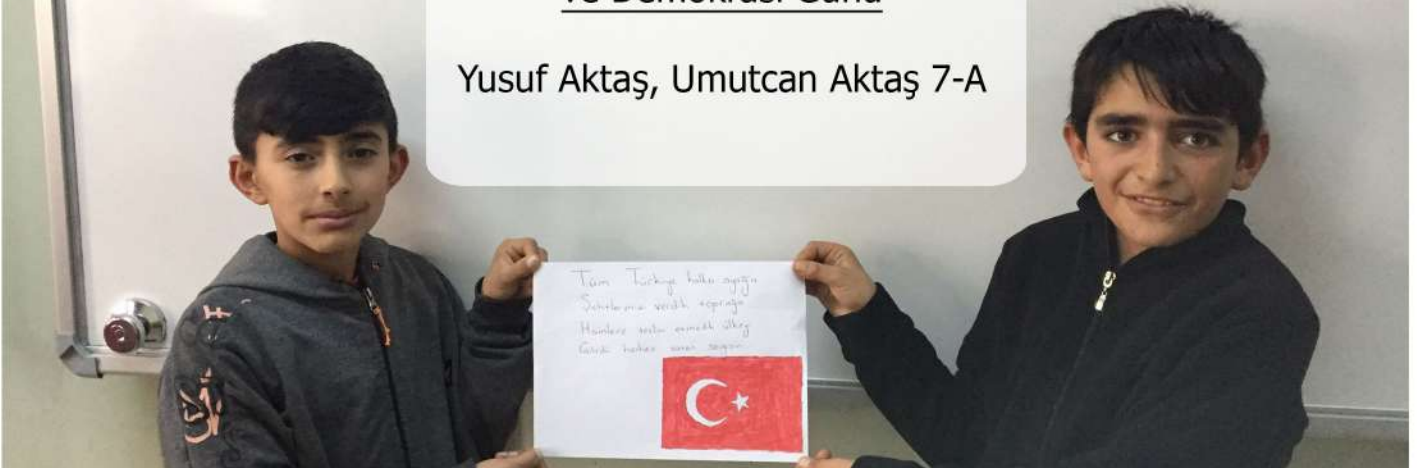 ve Demokrasi Günü
Yusuf Aktaş, Umutcan Aktaş 7-A
Tüm Türkiye halkı ayağa
Şehitlerimizi verdik toprağa
Hainlere teslim etmedik ülkeyi
herkes